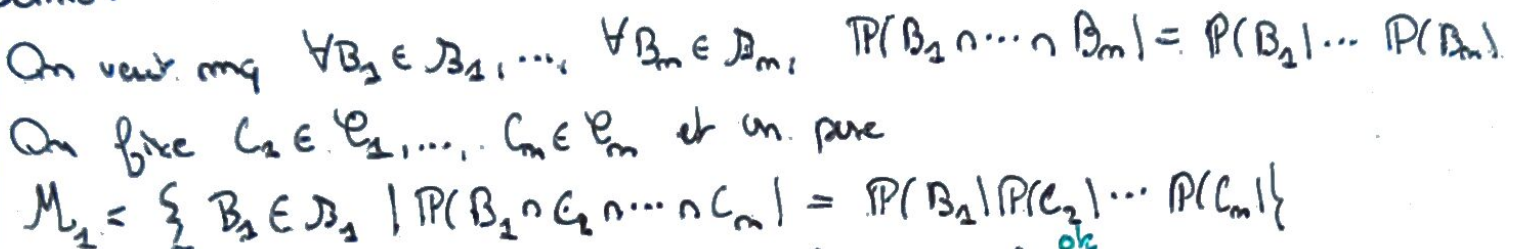 On veut mq ∀B₁ ∈ 𝓑₁, ..., ∀Bₘ ∈ 𝓑ₘ, ℙ(B₁ ∩ ··· ∩ Bₘ) = ℙ(B₁) ··· ℙ(Bₘ).
On fixe C₂ ∈ 𝒞₂, ..., Cₘ ∈ 𝒞ₘ et on pose
𝓜₁ = { B₁ ∈ 𝓑₁ | ℙ(B₁ ∩ C₂ ∩ ··· ∩ Cₘ) = ℙ(B₁) ℙ(C₂) ··· ℙ(Cₘ)}
ok